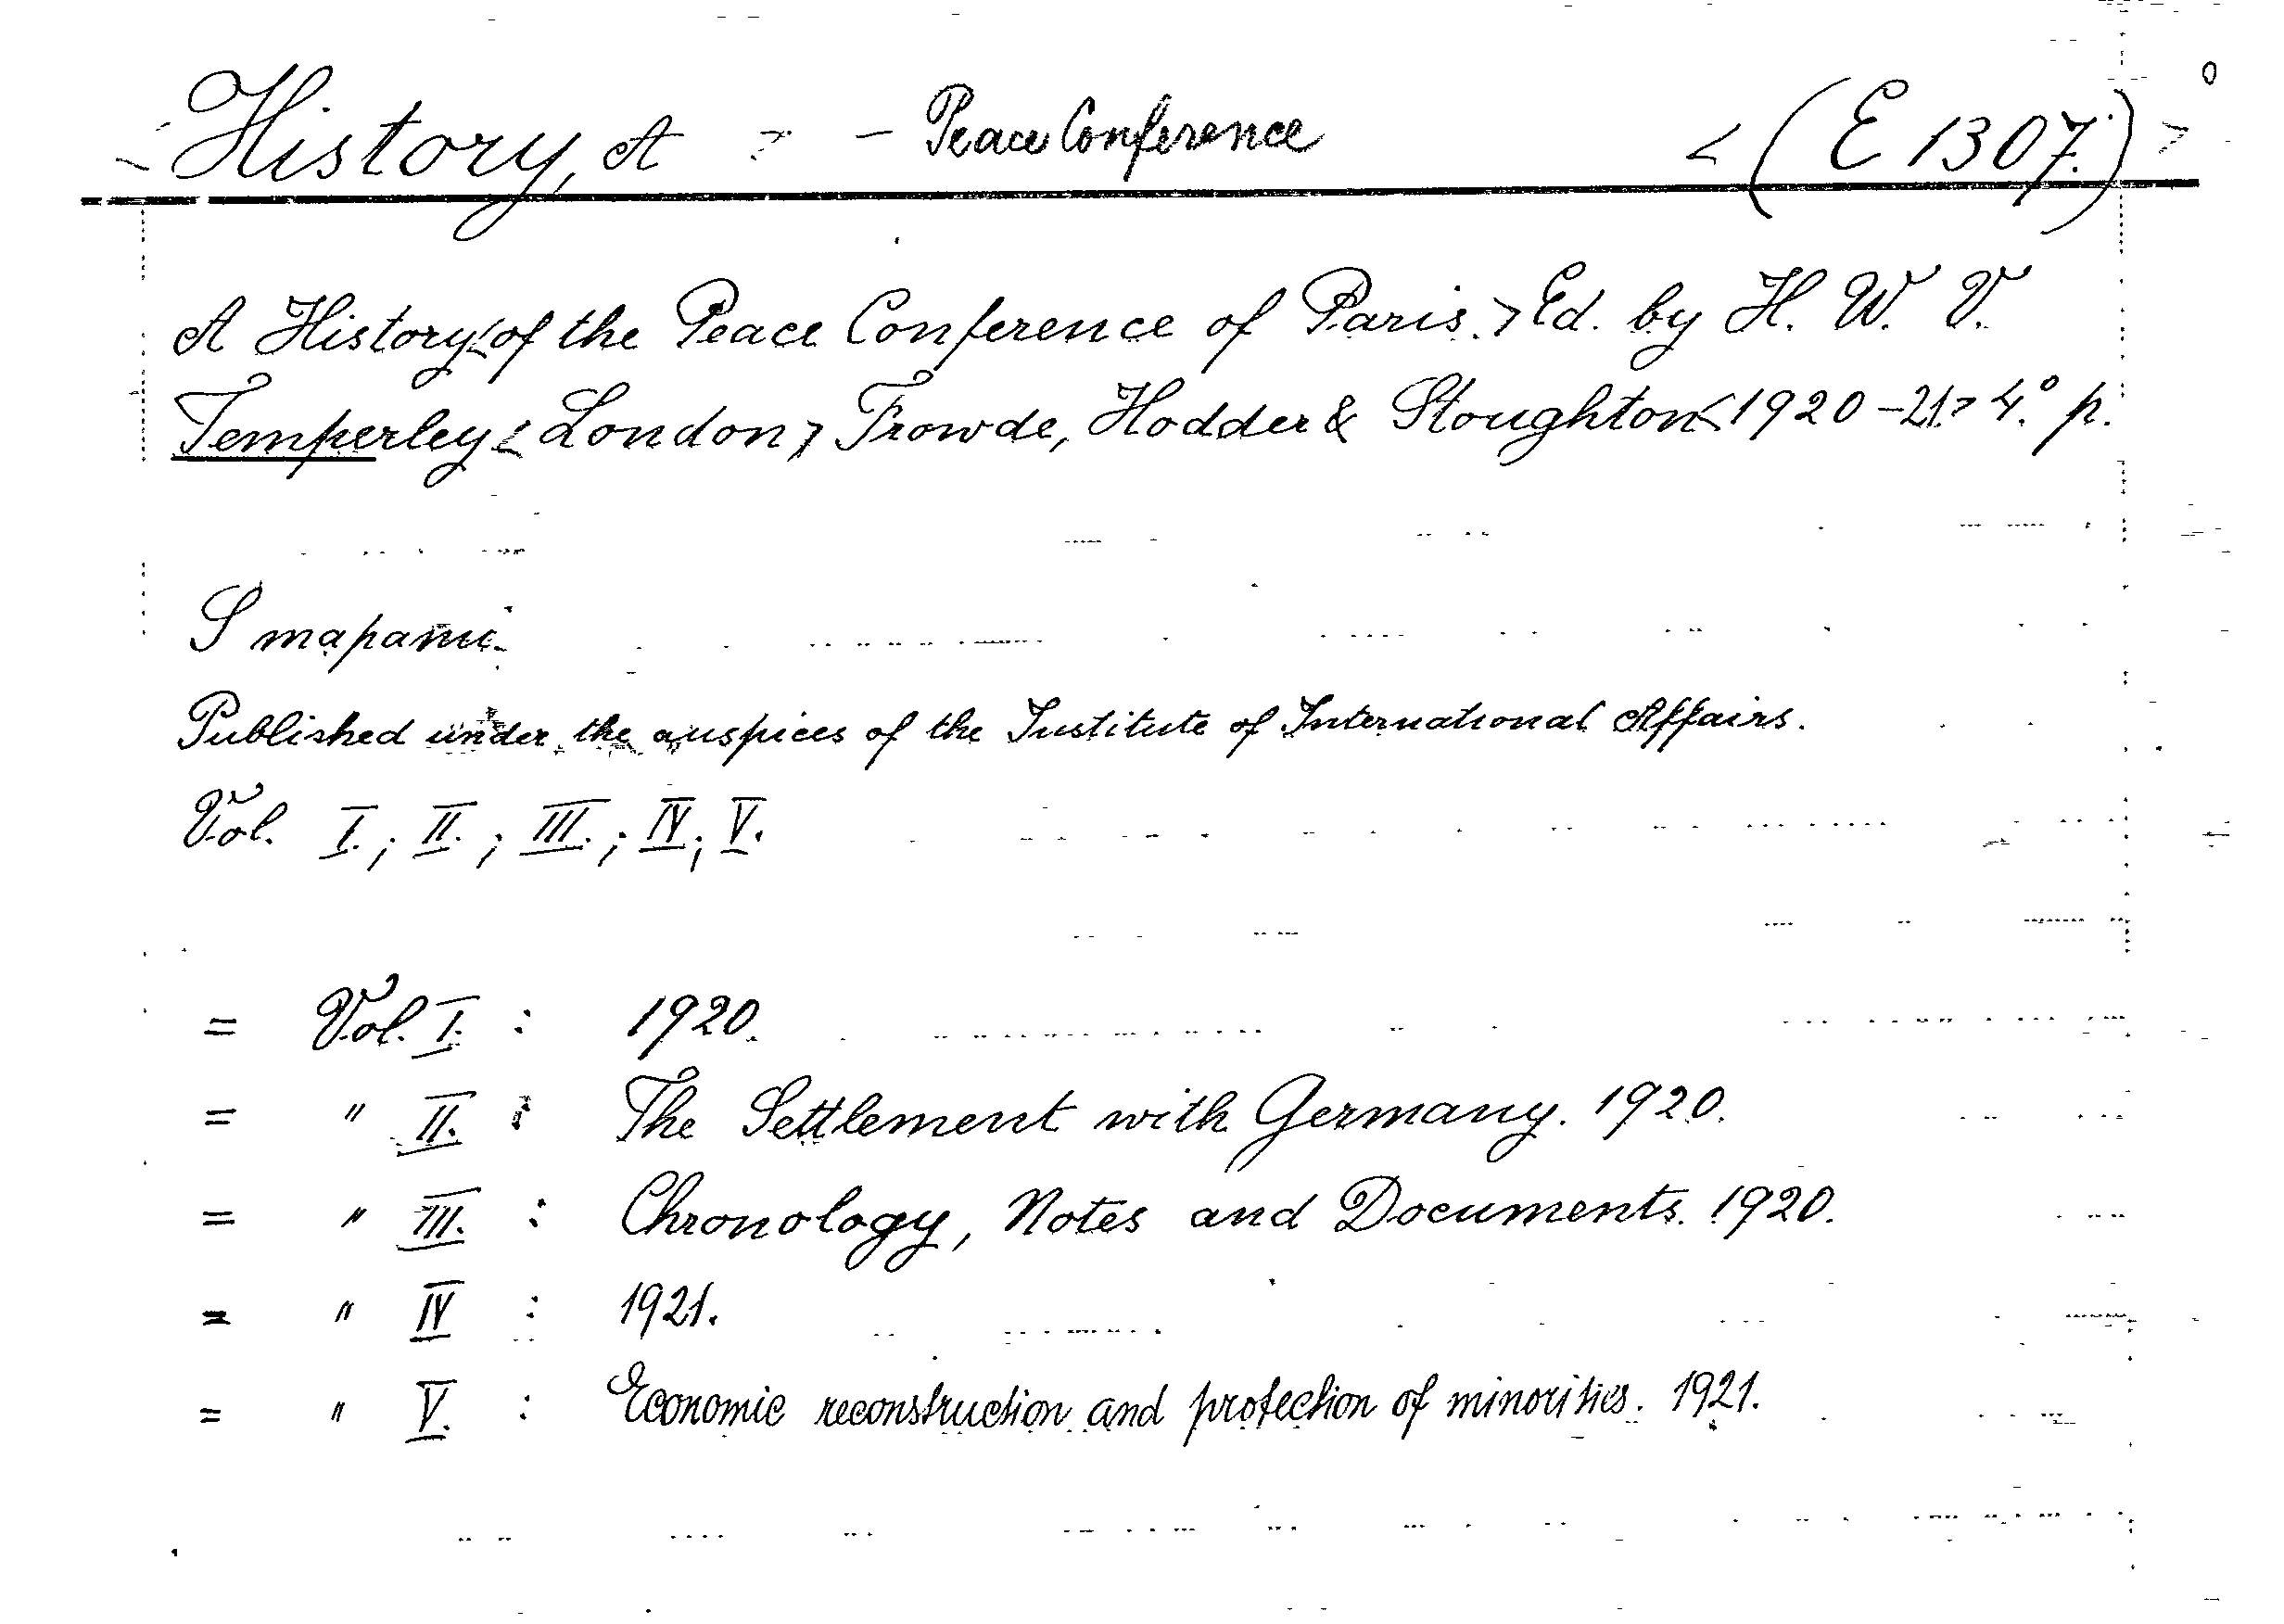 History, A - Peace Conference < (E 1307.) >
A History < of the Peace Conference of Paris. > Ed. by H. W. V.
Temperley < London > Frowde, Hodder & Stoughton < 1920-21. > 4.° p.
S mapami.
Published under the auspices of the Institute of International Affairs.
Vol. I.; II.; III.; IV; V.
= Vol. I. : 1920.
= " II. : The Settlement with Germany. 1920.
= " III. : Chronology, Notes and Documents. 1920.
= " IV : 1921.
= " V. : Economic reconstruction and protection of minorities. 1921.